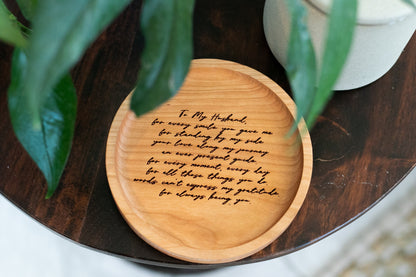 To My Husband,
for every smile you gave me
for standing by my side
your love along my journey
an ever present guide
for every moment, every day
for all those things you do
words can't express my gratitude
for always being you